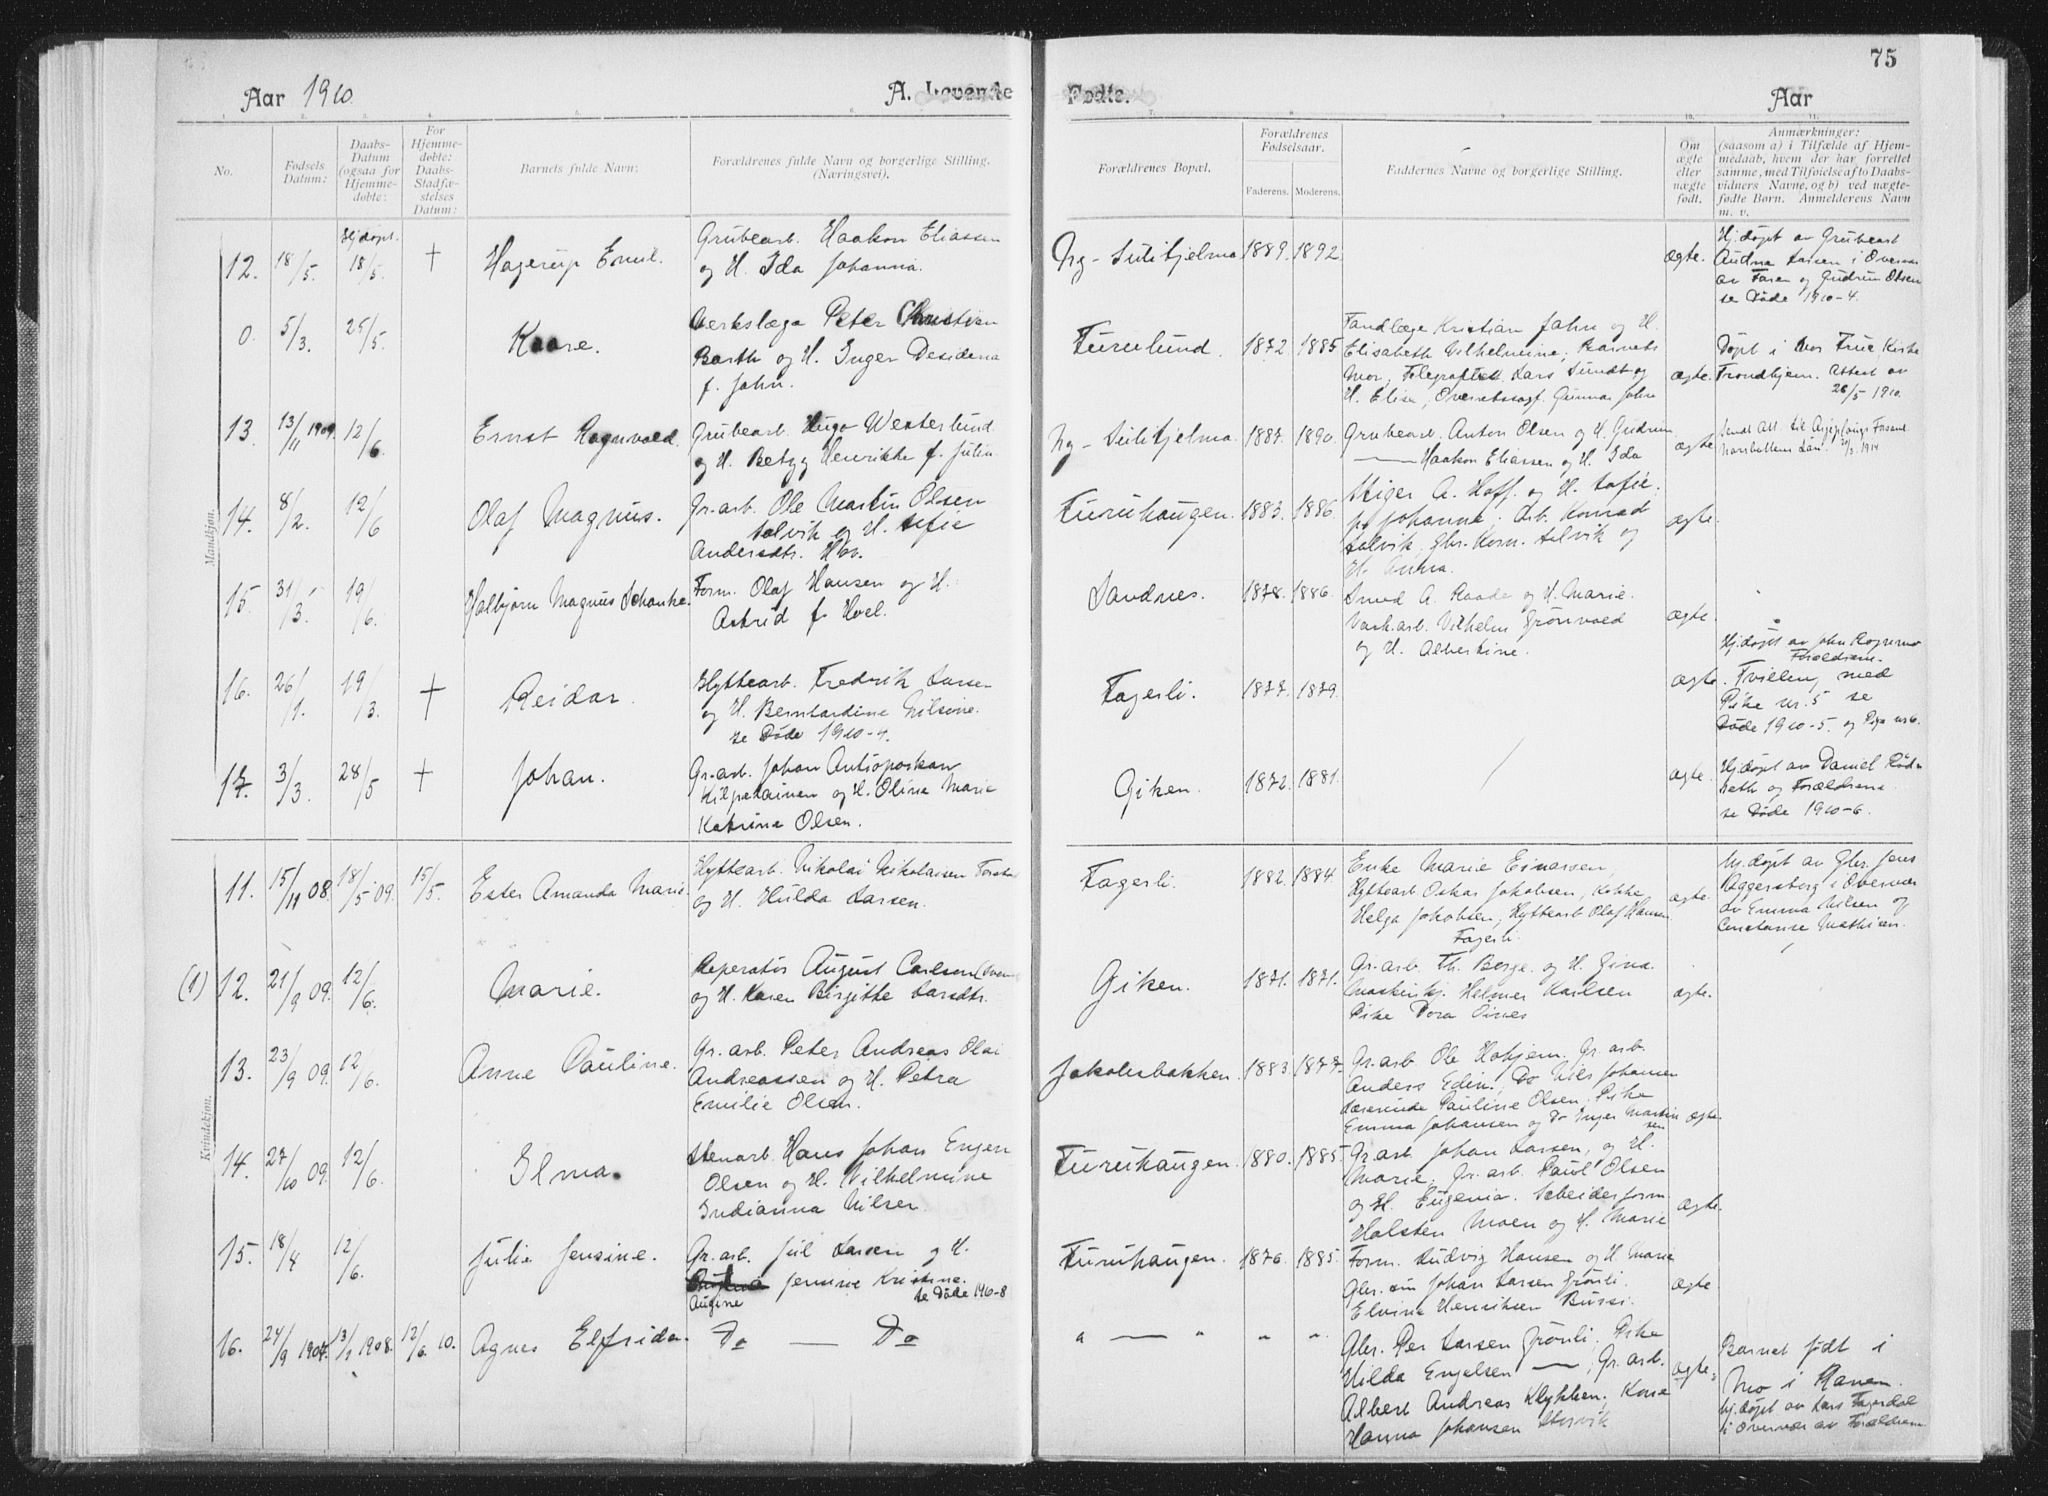 75
Aar 1910.
A. Levende
Fødte.
Aar
1.
2.
3.
4.
5.
6.
7.
8.
9.
10.
11.
No.
Fødsels Datum:
Daabs-Datum (ogsaa for Hjemmedøbte:
For Hjemmedøbte: Daabs-Stadfæstelses Datum:
Barnets fulde Navn:
Forældrenes fulde Navn og borgerlige Stilling. (Næringsvei).
Forældrenes Bopæl.
Forældrenes Fødselsaar.
Faderens. Moderens.
Faddernes Navne og borgerlige Stilling.
Om ægte eller uægte født.
Anmærkninger:
(saasom a) i Tilfælde af Hjem-
medaab, hvem der har forrettet
samme, med Tilføielse af to Daabs-
vidners Navne, og b) ved uægte-
fødte Børn. Anmelderens Navn
m. v.
Mandkjøn.
12. 18/5. Hj.døpt. 18/5. † Hagerup Emil.
Grubearb. Haakon Eliassen
og H. Ida Johanna.
Ny-Sulitjelma 1889. 1892.
ægte.
Hj.døpt av Grubearb
Larsen i Overvær
av Faren og Gudrun Olsen
se Døde 1910-4.
0. 5/3. 25/5. Kaare.
Verkslæge Peter Christian
Barth og H. Inger Desideria
f. Jahn.
Furulund. 1872 1885
Tandlæge Kristian Jahn og H.
Elisabeth Vilhelmine; Barnets
Mor, Lars Sundt og
H. Elise, Overretssagf. Gunnar Jahn
ægte.
Døpt i Vor Frue Kirke
Trondhjem. Attest av
26/5 1910.
13. 13/11 1909. 12/6. Ernst Ragnvald.
Grubearb. Hugo Westerlund
og H. Betzy Henrikke f. Juliu
Ny-Sulitjelma. 1887. 1890.
Grubearb. Anton Olsen og H. Gudrun
— Haakon Eliassen og H. Ida
ægte
Sendt Att. til Arjeplougs Forsaml.
Norrbottens Län. 1914
14. 8/2. 12/6 Olaf Magnus.
Gr.arb. Ole Martin Olsen
Solvik og H. Sofie
Andersdtr.
Furuhaugen. 1883. 1886
Stiger A. Hoff. og H. Sofie.
Johanna; Arb. Konrad
Solvik, Gbr. Korn. Solvik og
H. Anna.
ægte.
15. 31/3. 19/6. Halbjørn Magnus Schanke.
Form. Olaf Hansen og H.
Astrid f. Hoel.
Sandnes. 1878. 1886.
Smed A. Raade og H. Marie.
Vask.arb. Vilhelm Grönvold
og H. Albertine.
ægte.
16. 26/1. 19/3. † Reidar.
Hyttearb. Fredrik Larsen
og H. Bernhardine Nilsine.
se Døde 1910-4.
Fagerli. 1877. 1879.
ægte.
Hj.døpt av John
Forældrene.
Tvilling med
Pike nr. 5 se
Døde 1910-5. og Pige nr 6.
17. 3/3. 28/5 † Johan.
Gr.arb. Johan
og H. Oline Marie
Katrine Olsen.
Giken. 1872. 1881.
ægte.
Hj.døpt av Daniel
og Forældrene.
se Døde 1910-6.
Kvindekjøn.
11. 15/11 08. 18/5 09. 15/5. Ester Amanda Marie.
Hyttearb. Nikolai Nikolaisen
og H. Hulda Larsen.
Fagerli. 1882. 1884
Enke Marie Einarsen,
Hyttearb Oskar Jakobsen, Kokke
Helga Jakobsen, Hyttearb Olaf Hansen
Fagerli.
ægte.
Hj.døpt av Gbr. Jens
i Overvær
av Emma Nilsen og
Constance Mathisen.
(1) 12. 21/9 09. 12/6. Marie.
Reperatør August Carlson
og H. Karen Birgitte Larsdtr.
Giken. 1871. 1871.
Gr.arb. Th. Berge. og H. Gina.
Maskinkj. Helmer Karlsen
Pike Dora
ægte.
13. 23/9 09. 12/6. Anne Pauline.
Gr.arb. Peter Andreas Olai
Andreassen og H. Petra
Emilie Olsen.
Jakobsbakken. 1883. 1877.
Gr.arb. Ole Gr.arb.
Anders Edin, Do Nils Johansen
Lærerinde Pauline Olsen. Pike
Emma Johansen og Do Inger Martin
sen
ægte.
14. 27/10 09. 12/6. Ilma.
Stenarb. Hans Johan Engen
Olsen og H. Vilhelmine
Indianna Nilsen.
Furuhaugen. 1880. 1885.
Gr.arb Johan Larsen, og H.
Marie, Gr.arb. Paul Olsen
og H. Eugenia. Arbeiderform
Halsten Moen og H. Marie
ægte.
15. 18/4 12/6. Julie Jensine.
Gr.arb. Jul Larsen og H.
Jensine Kristine.
Augine se Døde 1910-8
Furuhaugen. 1876. 1885.
Form. Ludvig Hansen og H Marie
Gbr. Johan Larsen Grönli.
Elvine Henriksen Bursi.
ægte.
16. 24/9 1907. 13/1 1908. 12/6. 10. Agnes Elfrida.
Do — Do
" — " " "
Gbr. Per Larsen Grönli. Pike
Hilda Engelsen —, Gr.arb.
Albert Andreas Klykken. Kone
Hanna Johansen Storvik
ægte.
Barnet født i
Mo i Ranen.
Hj.døpt av Lars Fagerdal
i Overvær av Forældrene